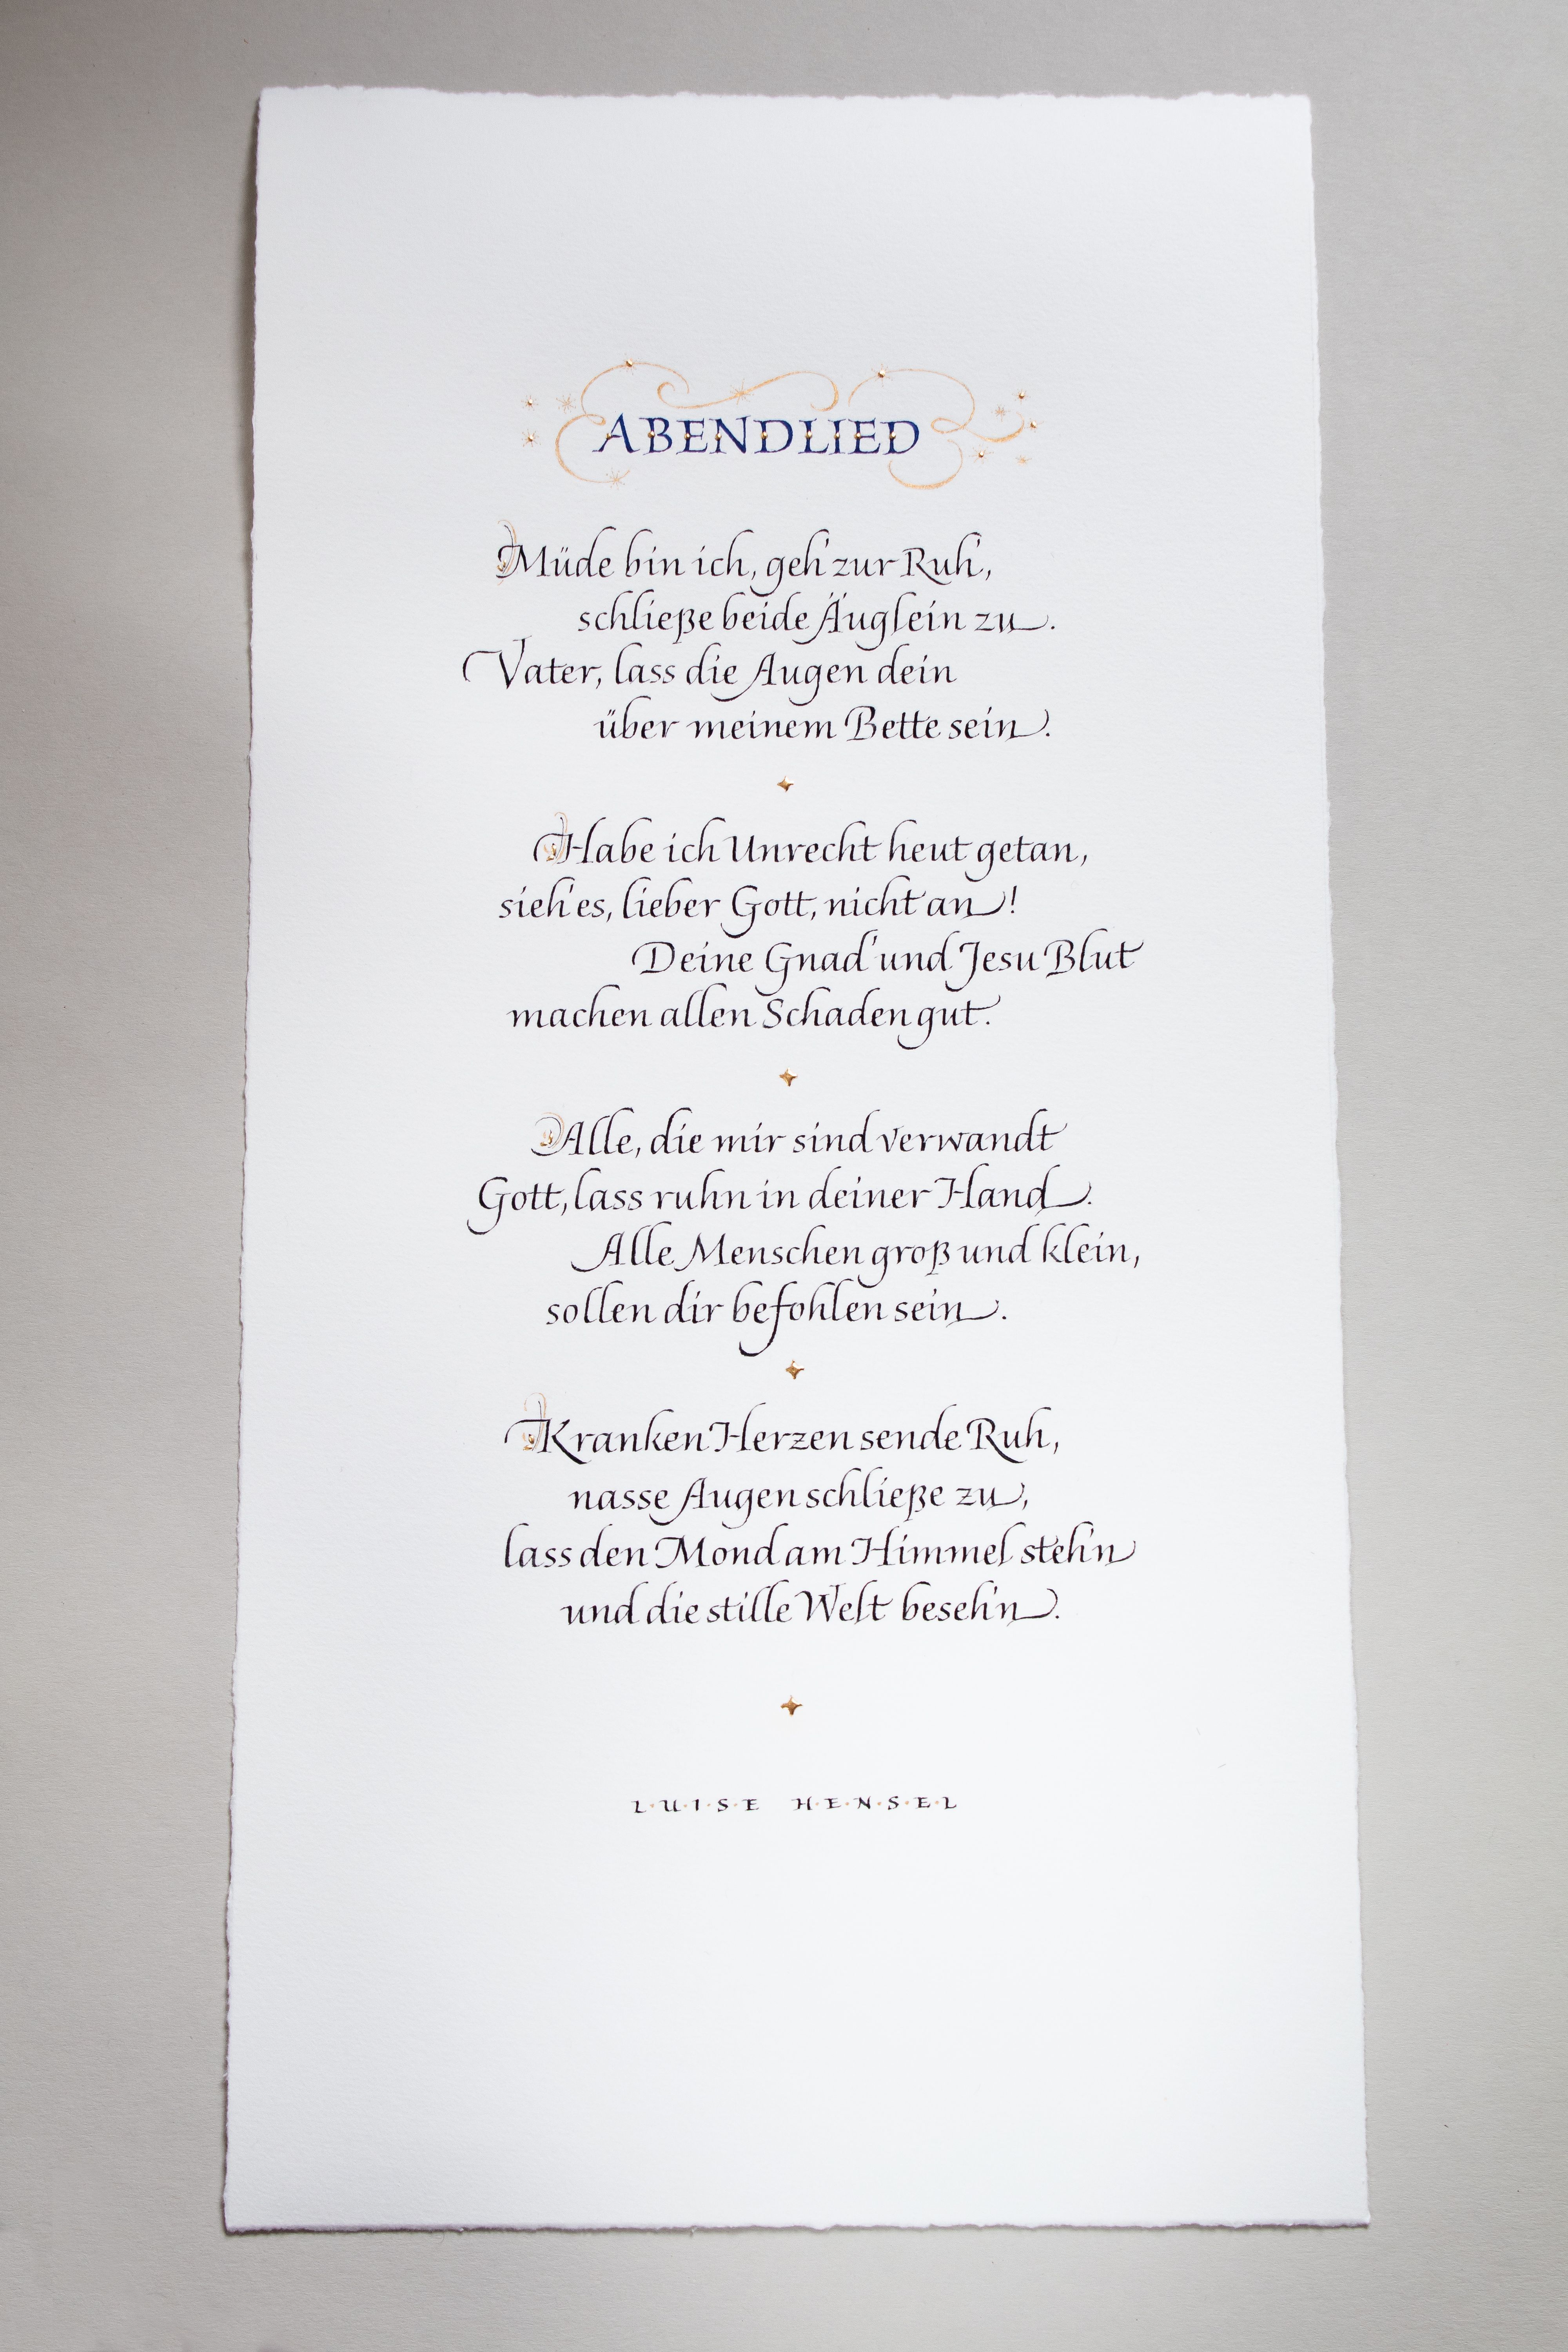 ABENDLIED
Müde bin ich, geh' zur Ruh',
schließe beide Äuglein zu.
Vater, lass die Augen dein
über meinem Bette sein.
Habe ich Unrecht heut getan,
sieh' es, lieber Gott, nicht an!
Deine Gnad' und Jesu Blut
machen allen Schaden gut.
Alle, die mir sind verwandt
Gott, lass ruhn in deiner Hand.
Alle Menschen groß und klein,
sollen dir befohlen sein.
Kranken Herzen sende Ruh,
nasse Augen schließe zu,
lass den Mond am Himmel steh'n
und die stille Welt beseh'n.
L·U·I·S·E H·E·N·S·E·L